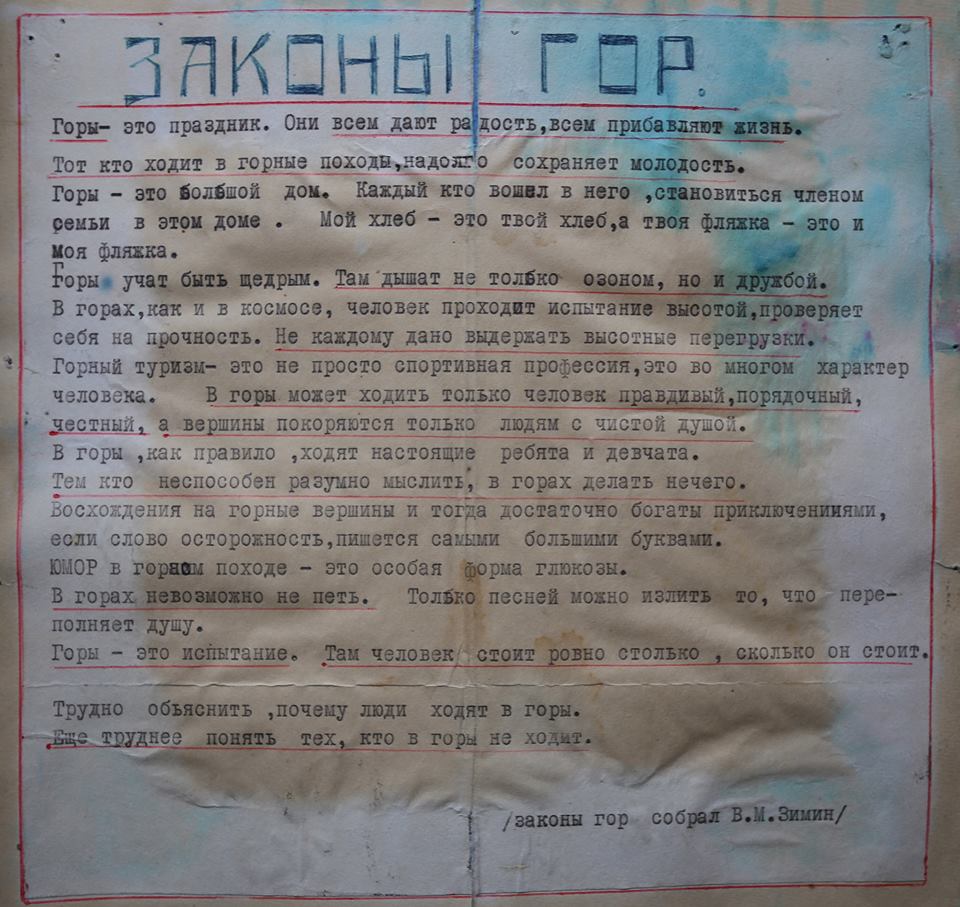 ЗАКОНЫ ГОР.
Горы- это праздник. Они всем дают радость,всем прибавляют жизнь.
Тот кто ходит в горные походы,надолго сохраняет молодость.
Горы - это большой дом. Каждый кто вошел в него ,становиться членом
семьи в этом доме . Мой хлеб - это твой хлеб,а твоя фляжка - это и
моя фляжка.
Горы учат быть щедрым. Там дышат не только озоном, но и дружбой.
В горах,как и в космосе, человек проходит испытание высотой,проверяет
себя на прочность. Не каждому дано выдержать высотные перегрузки.
Горный туризм- это не просто спортивная профессия,это во многом характер
человека. В горы может ходить только человек правдивый,порядочный,
честный, а вершины покоряются только людям с чистой душой.
В горы ,как правило ,ходят настоящие ребята и девчата.
Тем кто неспособен разумно мыслить, в горах делать нечего.
Восхождения на горные вершины и тогда достаточно богаты приключениями,
если слово осторожность,пишется самыми большими буквами.
ЮМОР в горном походе - это особая форма глюкозы.
В горах невозможно не петь. Только песней можно излить то, что пере-
полняет душу.
Горы - это испытание. Там человек стоит ровно столько , сколько он стоит.
Трудно обьяснить ,почему люди ходят в горы.
Еще труднее понять тех, кто в горы не ходит.
/законы гор собрал В.М.Зимин/